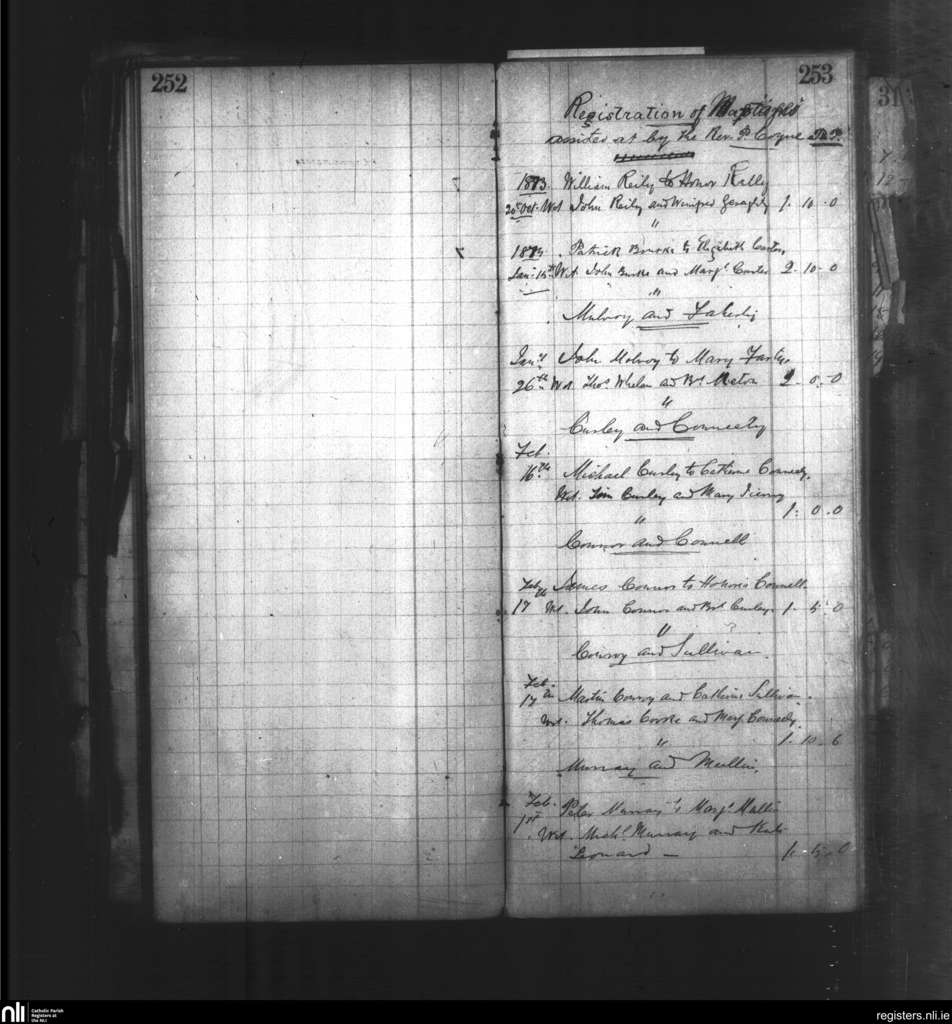 252
253
Registration of Marriages
assisted at by the Rev. P. Coyne P.P.
1873 William Reily to Honor Kelly
20th Oct. Wit John Reily and Winifred Geraghty 1. 10. 0
"
Patrick Bourke to Elizabeth
Jan. 15th Wit John Burke and Margt. 2. 10. 0
"
Mulroy and
Jany John Molroy to Mary
26th Wit. Thos. Whelan and 2. 0. 0
"
Curley and Conneely
Feb.
16th Michael Curley to Catherine Conneely.
Wit. Tim Curley and Mary
1. 0. 0
"
Connor and Connell
Feb James Connor to Honoria Connell.
17th Wit. John Connor and Curley. 1. 5. 0
"
Conroy and Sullivan.
Feb.
17th Martin Conroy and Catherine Sullivan.
Wit. Thomas and Mary Conneely.
1. 10. 6
"
Murray and Mullin.
Feb. Peter Murray to Margt. Mullin
1st
Wit. Michl. Murray and Kate
Leonard — 1. 5. 0
31
nli
Catholic Parish
Registers at
the NLI
registers.nli.ie